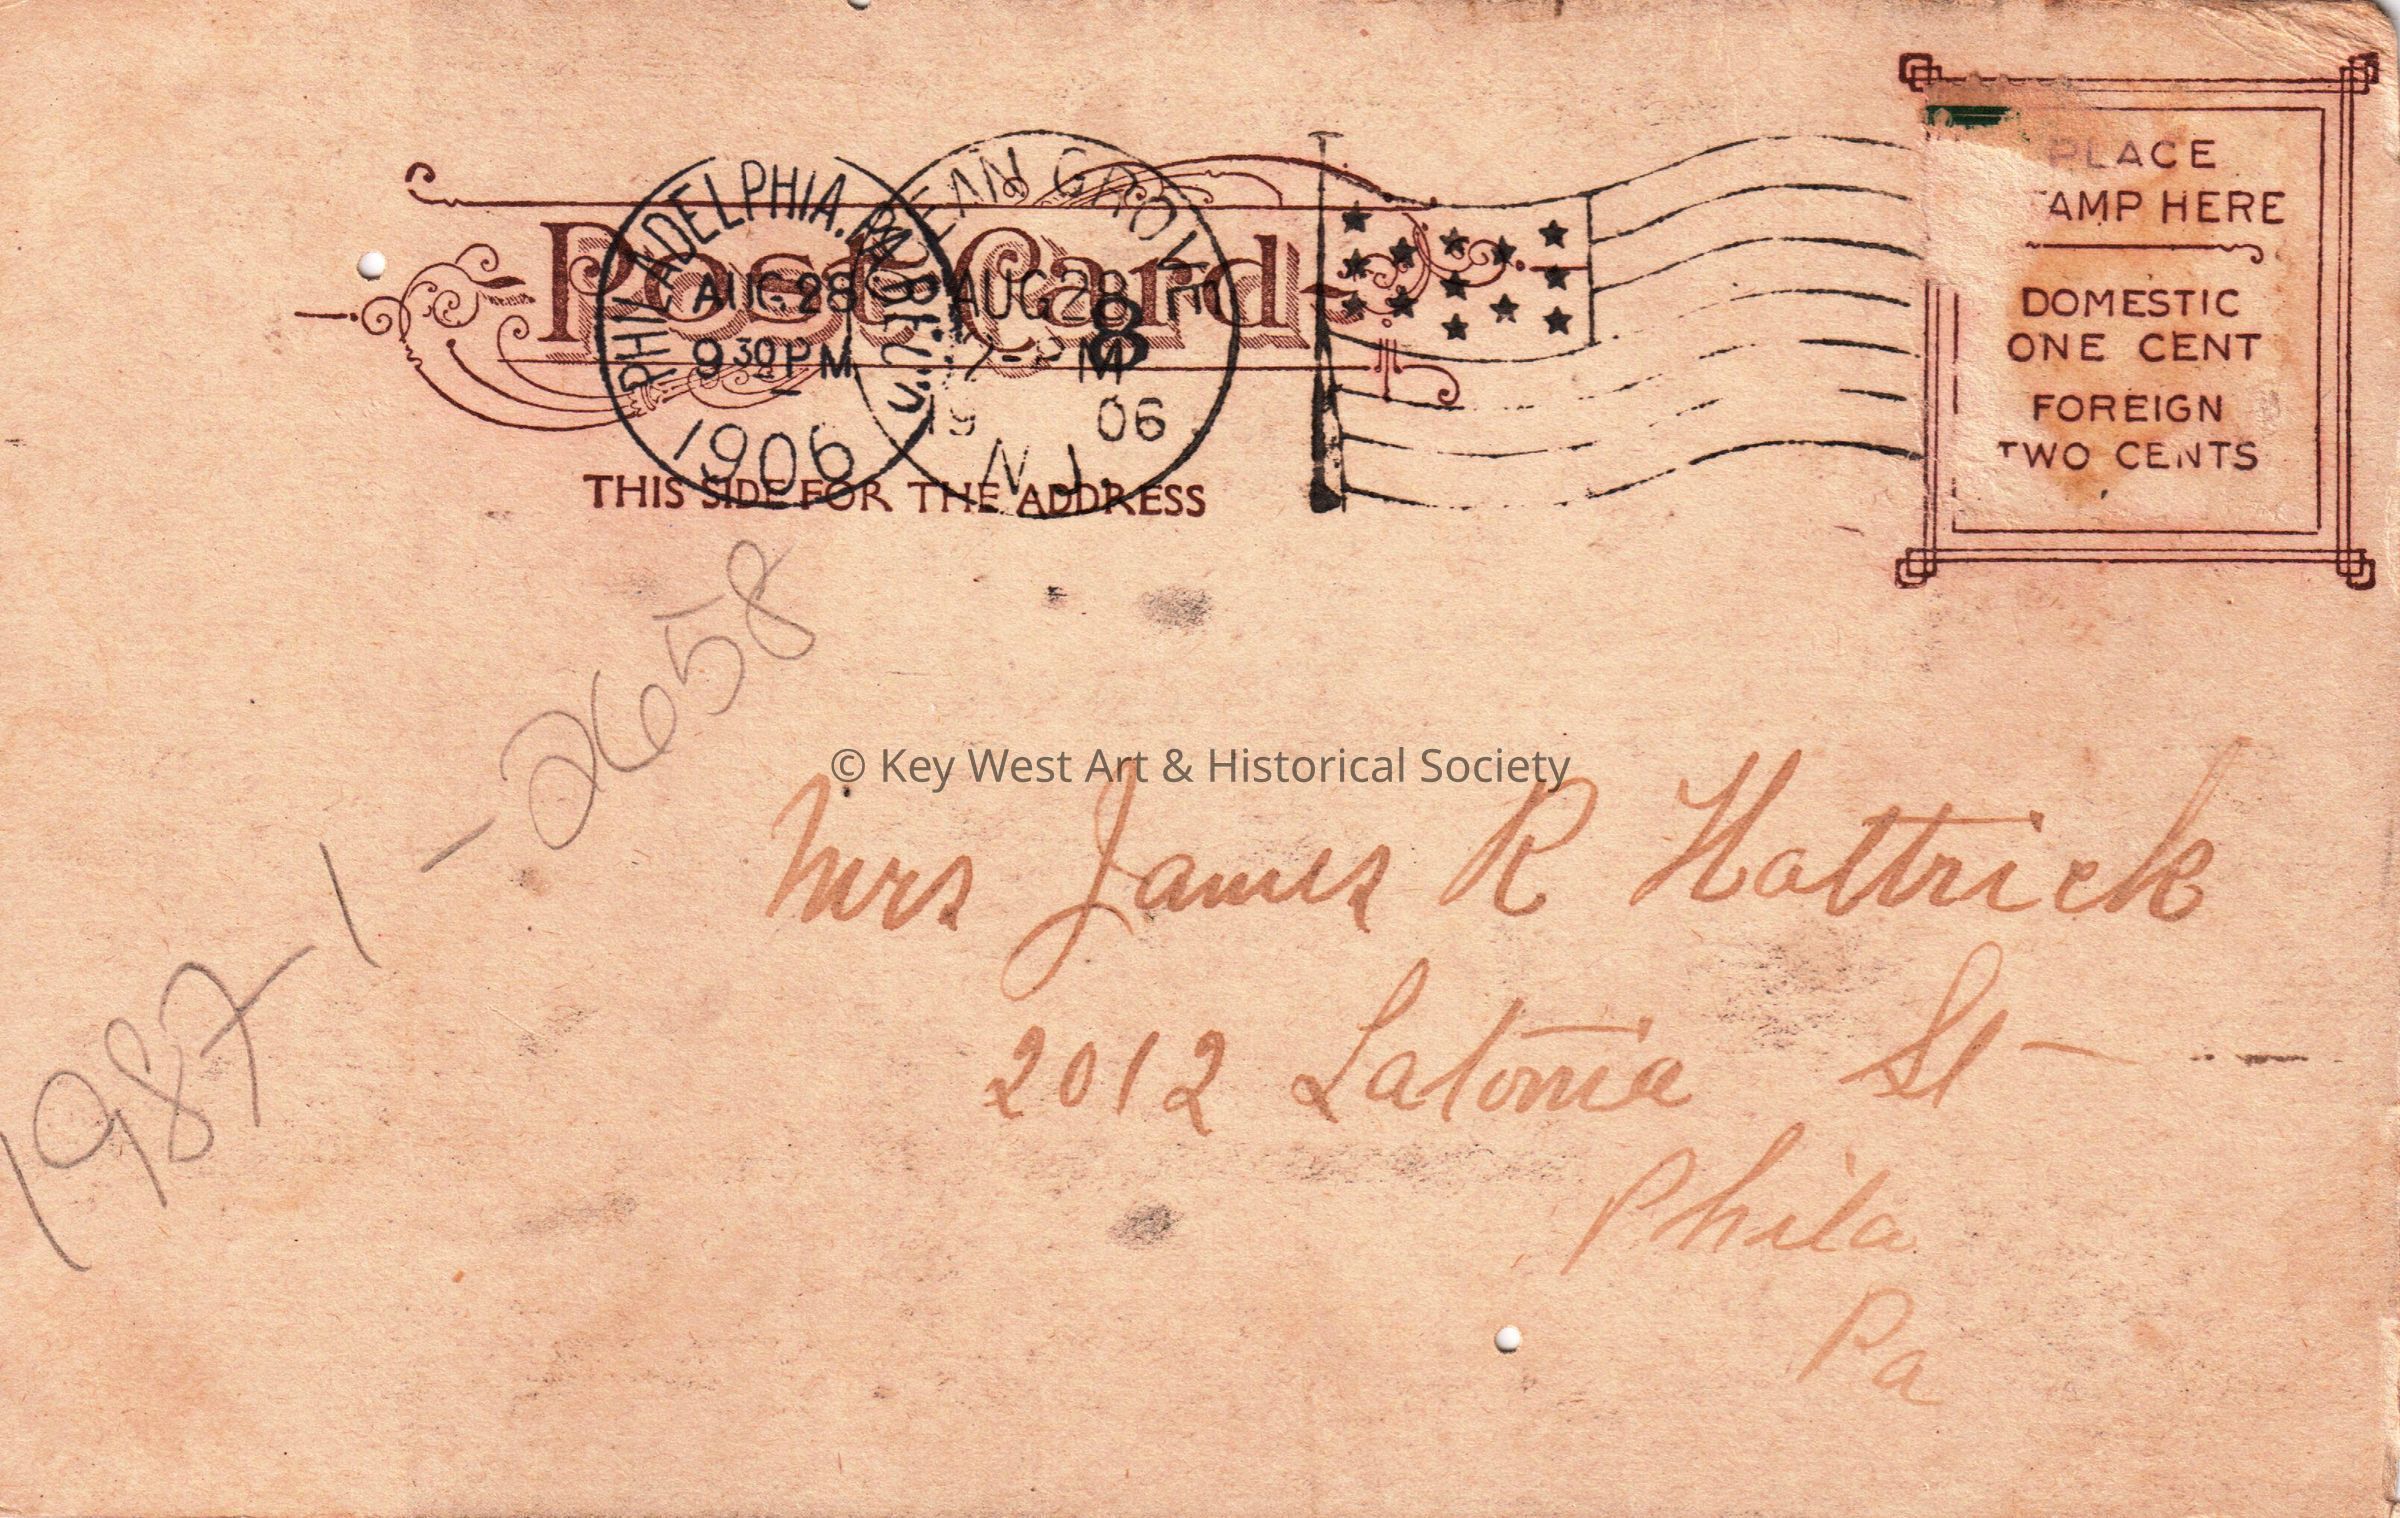 Post Card
PHILADELPHIA, PA.
AUG 28
9 30 PM
1906
OCEAN GROVE
AUG 28
7 - PM
8
19 06
N.J.
THIS SIDE FOR THE ADDRESS
PLACE
TAMP HERE
DOMESTIC
ONE CENT
FOREIGN
TWO CENTS
1987-1-2658
© Key West Art & Historical Society
Mrs James R Hattrick
2012 Latonia St
Phila
Pa